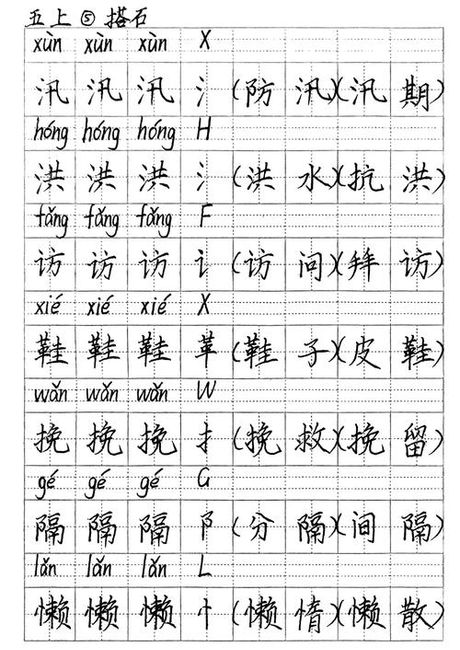 五上⑤搭石
xùn xùn xùn X
汛 汛 汛 氵(防 汛)(汛 期)
hóng hóng hóng H
洪 洪 洪 氵(洪 水)(抗 洪)
fǎng fǎng fǎng F
访 访 访 讠(访 问)(拜 访)
xié xié xié X
鞋 鞋 鞋 革(鞋 子)(皮 鞋)
wǎn wǎn wǎn W
挽 挽 挽 扌(挽 救)(挽 留)
gé gé gé G
隔 隔 隔 阝(分 隔)(间 隔)
lǎn lǎn lǎn L
懒 懒 懒 忄(懒 惰)(懒 散)